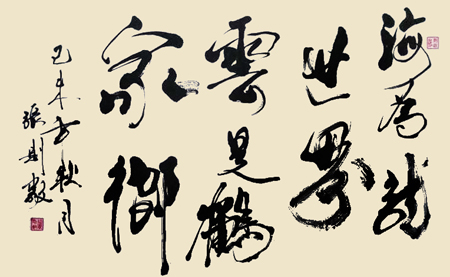 海為龍
世界
雲是鶴
家鄉
己未 秋月
張